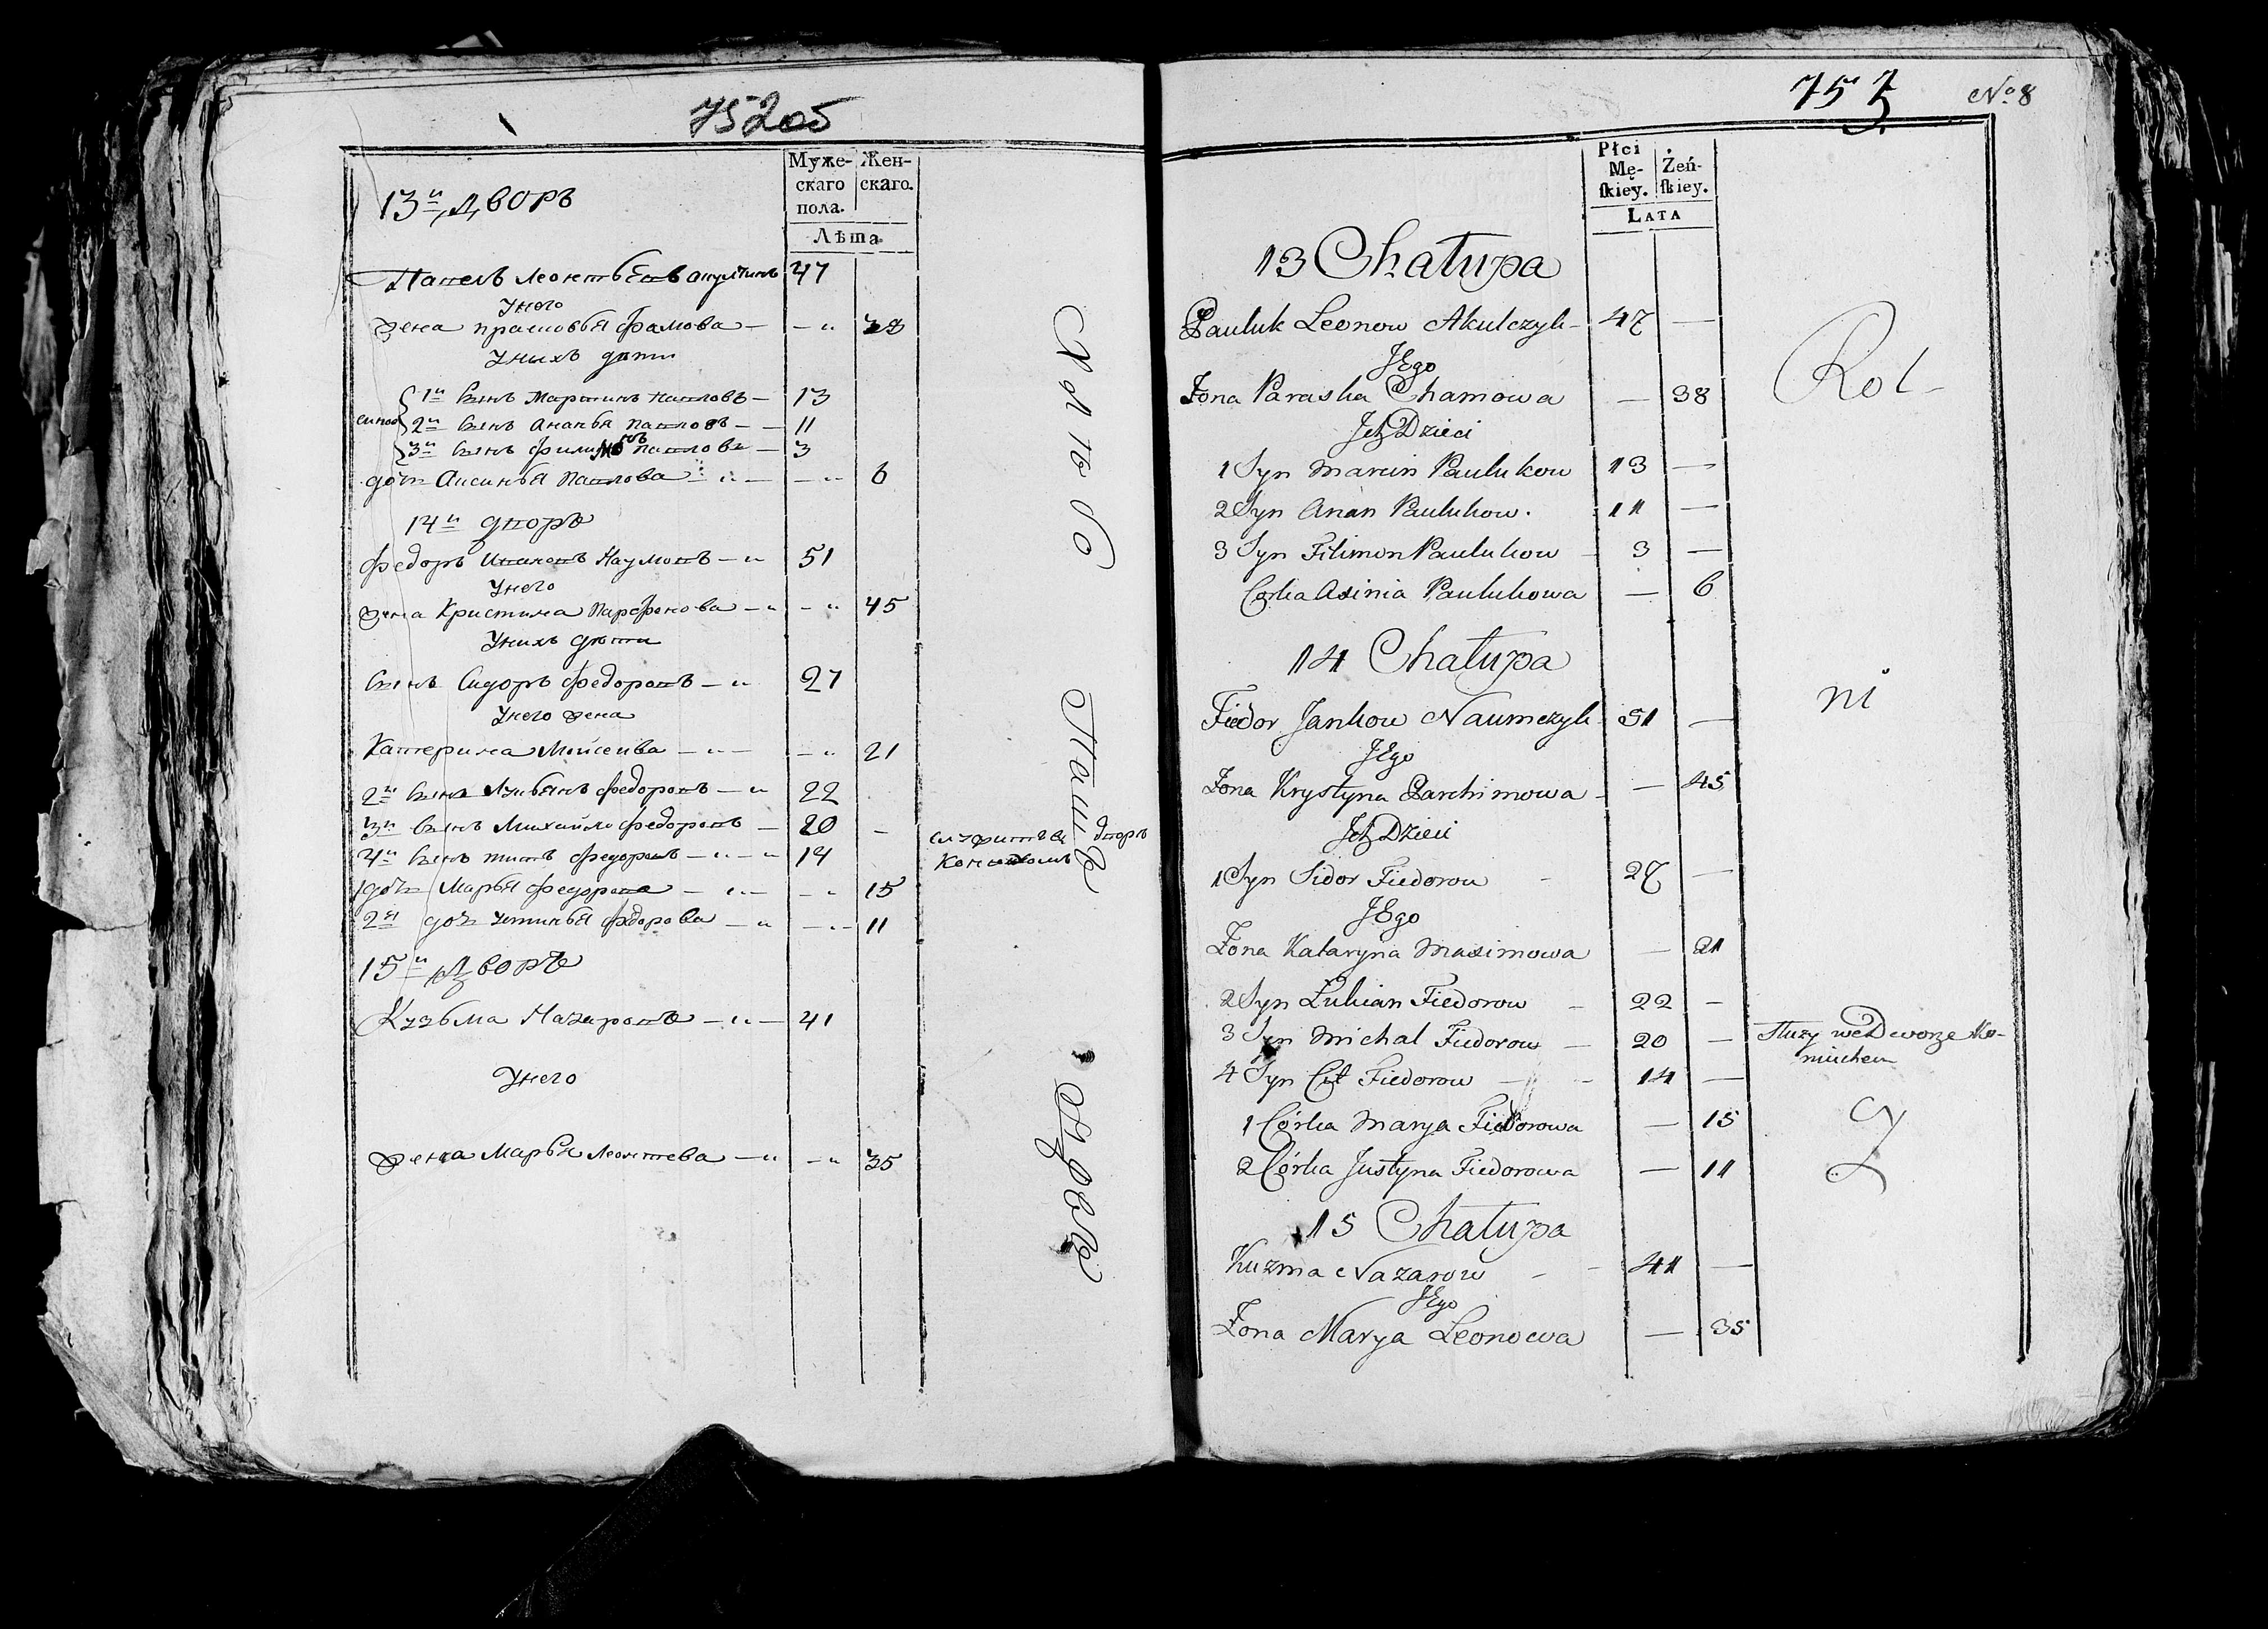 752об
Муже-
скаго
пола.
Жен-
скаго.
Лѣта
13й Дворъ
Павелъ Леонтьевъ Акулчикъ 47
Унего
жена прасковья Фамова — — " 38
Унихъ дети
1й Сынъ Мартинъ Павловъ — 13
2й Сынъ Ананья Павловъ — — 11
3й Сынъ Филимонъ Павловъ — 3
дочь Аксинья Павлова — " — — " 6
14й дворъ
Федоръ Ивановъ Наумовъ — " 51
Унего
жена Кристина Парфенова — " — " 45
Унихъ дети
Сынъ Сидоръ Федоровъ — " 27
Унего жена
Катерина Моисеива — " — — " 21
2й Сынъ Лукьянъ Федоровъ — " 22
3й Сынъ Михайло Федоровъ — 20 —
служитъ въ дворѣ
Конюхомъ
4й Сынъ титъ Федоровъ — " — " 14
1 дочь Марья Федорова — " — — " 15
2я дочь Устинья Федорова — " — " — 11
15й Дворъ
Кузьма Назаровъ — " — 41
Унего
жена Марья Леонтева — " — " 35
Хлѣбо
Паш
753 No 8
Płci
Mę-
skiey.
Żeń-
skiey.
LATA
13 Chałupa
Pauluk Leonow Akulczyk — 47 —
JEgo
Żona Paraska Chamowa — 38
Ich Dzieci
1 Syn Marcin Paulukow 13 —
2 Syn Anan Paulukow. 11 —
3 Syn Filimon Paulukow — 3 —
Corka Axinia Paulukowa — 6
14 Chałupa
Fiedor Jankow Naumczyk — 51 —
JEgo
Żona Krystyna Parchimowa — — 45
Ich Dzieci
1 Syn Sidor Fiedorow — 27 —
JEgo
Żona Kataryna Maximowa — 21
2 Syn Łukian Fiedorow — 22 —
3 Syn Michal Fiedorow — 20 — Służy we Dworze Ko-
niuchem
4 Syn Cit Fiedorow — — 14 —
1 Córka Marya Fiedorowa — 15
2 Córka Justyna Fiedorowa — 11
15 Chałupa
Kuzma Nazarow — — 41 —
JEgo
Żona Marya Leonowa — 35
Rol-
ni
cy